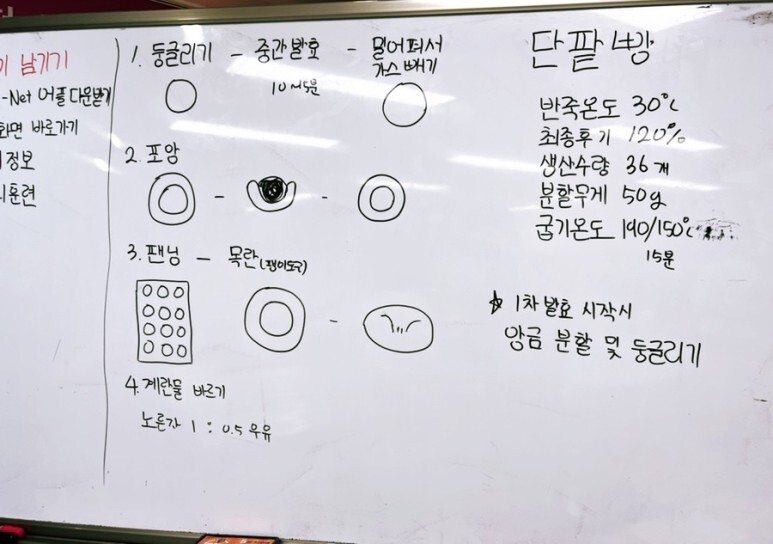 남기기
-Net 어플 다운받기
화면 바로가기
정보
훈련
1. 둥글리기 - 중간발효 - 밀어펴서
가스빼기
2. 포앙
- -
3. 팬닝 - 목란
-
4. 계란물 바르기
노른자 1 : 0.5 우유
단팥빵
반죽온도 30°C
최종후기 120%
생산수량 36개
분할무게 50g
굽기온도 190/150°C
15분
☆ 1차 발효 시작시
앙금 분할 및 둥글리기